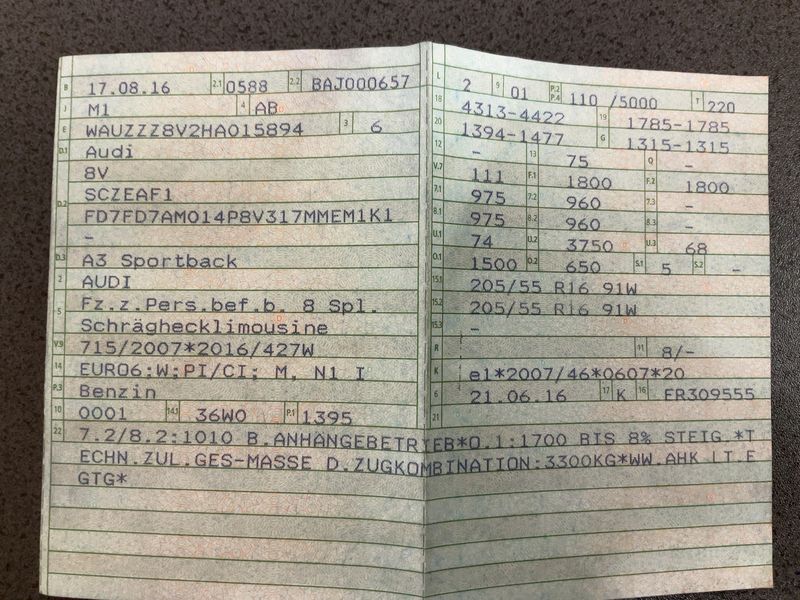 B 17.08.16 2.1 0588 2.2 BAJ000657
J M1 4 AB
E WAUZZZ8V2HA015894 3 6
D.1 Audi
8V
D.2 SCZEAF1
FD7FD7AM014P8V317MMEM1K1
-
D.3 A3 Sportback
2 AUDI
5 Fz.z.Pers.bef.b. 8 Spl.
Schräghecklimousine
V.9 715/2007*2016/427W
14 EURO6;W;PI/CI; M, N1 I
P.3 Benzin
10 0001 14.1 36W0 P.1 1395
L 2 9 01 P.2 P.4 110 /5000 T 220
18 4313-4422 19 1785-1785
20 1394-1477 G 1315-1315
12 - 13 75 Q -
V.7 111 F.1 1800 F.2 1800
7.1 975 7.2 960 7.3 -
8.1 975 8.2 960 8.3 -
U.1 74 U.2 3750 U.3 68
O.1 1500 O.2 650 S.1 5 S.2 -
15.1 205/55 R16 91W
15.2 205/55 R16 91W
15.3 -
R 11 8/-
K e1*2007/46*0607*20
6 21.06.16 17 K 16 FR309555
21
22 7.2/8.2:1010 B.ANHÄNGEBETRIEB*O.1:1700 BIS 8% STEIG.*T
ECHN.ZUL.GES-MASSE D.ZUGKOMBINATION:3300KG*WW.AHK LT.E
GTG*